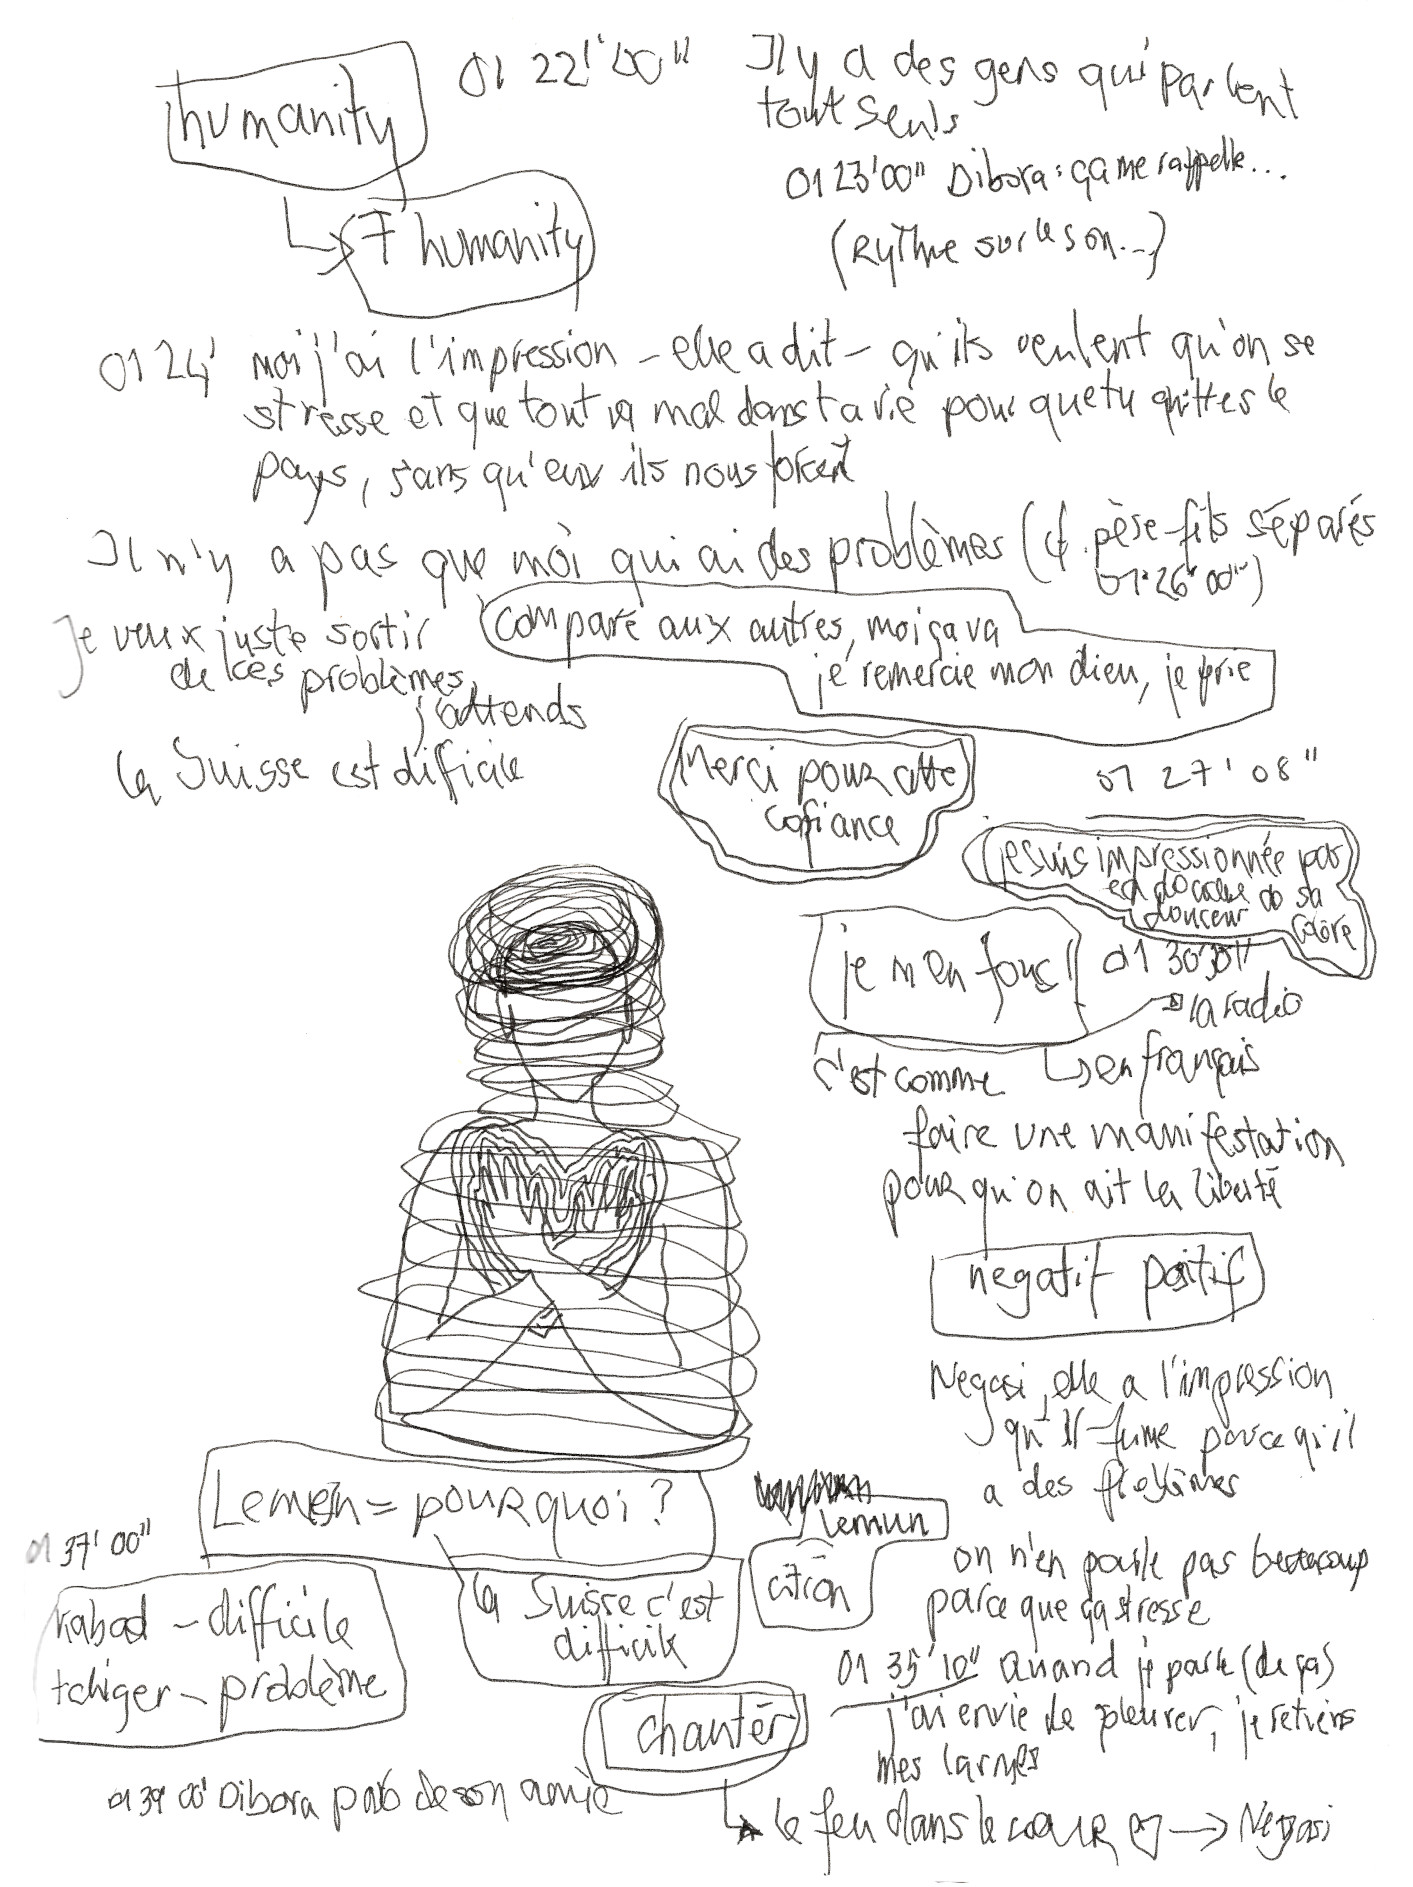 humanity
01 22' 00"
Il y a des gens qui parlent
tout seuls
01 23'00" Dibora : ça me rappelle...
(Rythme sur le son...)
7 humanity
01 24' moi j'ai l'impression - elle a dit - qu'ils veulent qu'on se
stresse et que tout va mal dans ta vie pour que tu quittes le
pays, sans qu'eux ils nous forcent
Il n'y a pas que moi qui ai des problèmes (cf. père-fils séparés
01 26' 00")
Je veux juste sortir
de ces problèmes,
j'attends
la Suisse est difficile
comparé aux autres, moi ça va
je remercie mon dieu, je prie
Merci pour cette
cofiance
01 27' 08"
je suis impressionnée par
douceur de sa
je m'en fous!
01 30'
la radio
en français
c'est comme
faire une manifestation
pour qu'on ait la liberté
negatif positif
Negasi, elle a l'impression
qu'il fume parce qu'il
a des problèmes
Lemen = pourquoi ?
01 37' 00"
kabad - difficile
tchiger - problème
la Suisse c'est
difficile
lemun
citron
on n'en parle pas beaucoup
parce que ça stresse
01 35' 10" Quand je parle (de ça)
j'ai envie de pleurer, je retiens
mes larmes
chanter
01 39' 00' Dibora parle de son amie
le feu dans le cœur → Negasi